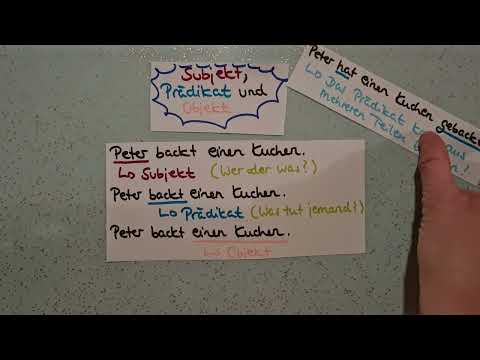 Subjekt,
Prädikat und
Objekt
Peter hat einen Kuchen gebacken
↳ Das Prädikat kann aus
mehreren Teilen
Peter backt einen Kuchen.
↳ Subjekt (Wer oder was?)
Peter backt einen Kuchen.
↳ Prädikat (Was tut jemand?)
Peter backt einen Kuchen.
↳ Objekt